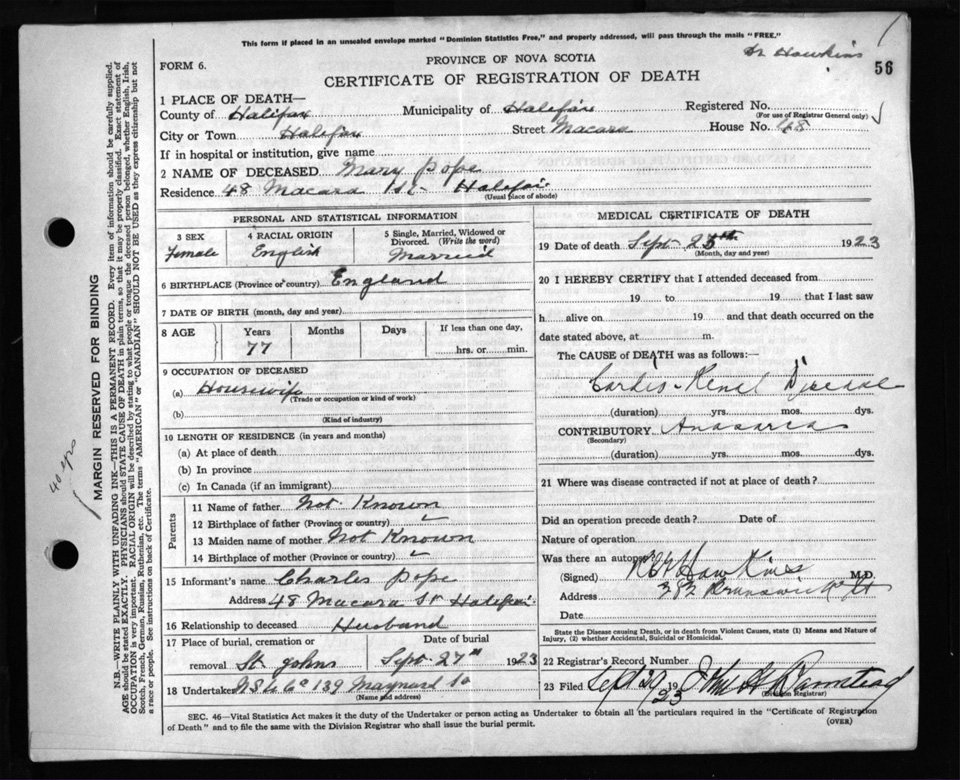 This form if placed in an unsealed envelope marked "Dominion Statistics Free," and properly addressed, will pass through the mails "FREE."
Dr Hawkins
PROVINCE OF NOVA SCOTIA
FORM 6.
56
CERTIFICATE OF REGISTRATION OF DEATH
1 PLACE OF DEATH—
County of Halifax Municipality of Halifax Registered No.
(For use of Registrar General only)
City or Town Halifax Street Macara House No. 48
If in hospital or institution, give name
2 NAME OF DECEASED Mary Pope
Residence 48 Macara St Halifax
(Usual place of abode)
PERSONAL AND STATISTICAL INFORMATION
3 SEX 4 RACIAL ORIGIN 5 Single, Married, Widowed or Divorced. (Write the word)
Female English Married
6 BIRTHPLACE (Province or country) England
7 DATE OF BIRTH (month, day and year)
8 AGE Years Months Days If less than one day,
77 hrs. or min.
9 OCCUPATION OF DECEASED
(a) Housewife
(Trade or occupation or kind of work)
(b)
(Kind of industry)
10 LENGTH OF RESIDENCE (in years and months)
(a) At place of death
(b) In province
(c) In Canada (if an immigrant)
Parents
11 Name of father Not Known
12 Birthplace of father (Province or country)
13 Maiden name of mother Not Known
14 Birthplace of mother (Province or country)
15 Informant's name Charles Pope
Address 48 Macara St Halifax
16 Relationship to deceased Husband
17 Place of burial, cremation or Date of burial
removal St Johns Sept 27th 1923
18 Undertaker N S U Co 139 Maynard St
(Name and address)
MEDICAL CERTIFICATE OF DEATH
19 Date of death Sept 25th 1923
(Month, day and year)
20 I HEREBY CERTIFY that I attended deceased from
19 to 19 that I last saw
h alive on 19 and that death occurred on the
date stated above, at m.
The CAUSE of DEATH was as follows:—
Cardio-Renal Disease
(duration) yrs. mos. dys.
CONTRIBUTORY Anasarca
(Secondary)
(duration) yrs. mos. dys.
21 Where was disease contracted if not at place of death?
Did an operation precede death? Date of
Nature of operation
Was there an autopsy
(Signed) Hawkins M.D.
Address 282 Brunswick St
Date
State the Disease causing Death, or in death from Violent Causes, state (1) Means and Nature of
Injury, (2) whether Accidental, Suicidal or Homicidal.
22 Registrar's Record Number
23 Filed Sept 29 1923
(Division Registrar)
SEC. 46—Vital Statistics Act makes it the duty of the Undertaker or person acting as Undertaker to obtain all the particulars required in the "Certificate of Registration
of Death" and to file the same with the Division Registrar who shall issue the burial permit. (OVER)
MARGIN RESERVED FOR BINDING
N.B.—WRITE PLAINLY WITH UNFADING INK—THIS IS A PERMANENT RECORD. Every item of information should be carefully supplied.
AGE should be stated EXACTLY. PHYSICIANS should STATE CAUSE OF DEATH in plain terms, so that it may be properly classified. Exact statement of
OCCUPATION is very important. RACIAL ORIGIN will be described by stating to what people or tongue the deceased person belonged, whether English, Irish,
Scotch, French, German, Russian, Ruthenian, etc. The terms "AMERICAN" or "CANADIAN" SHOULD NOT BE USED as they express citizenship but not
a race or people. See instructions on back of Certificate.